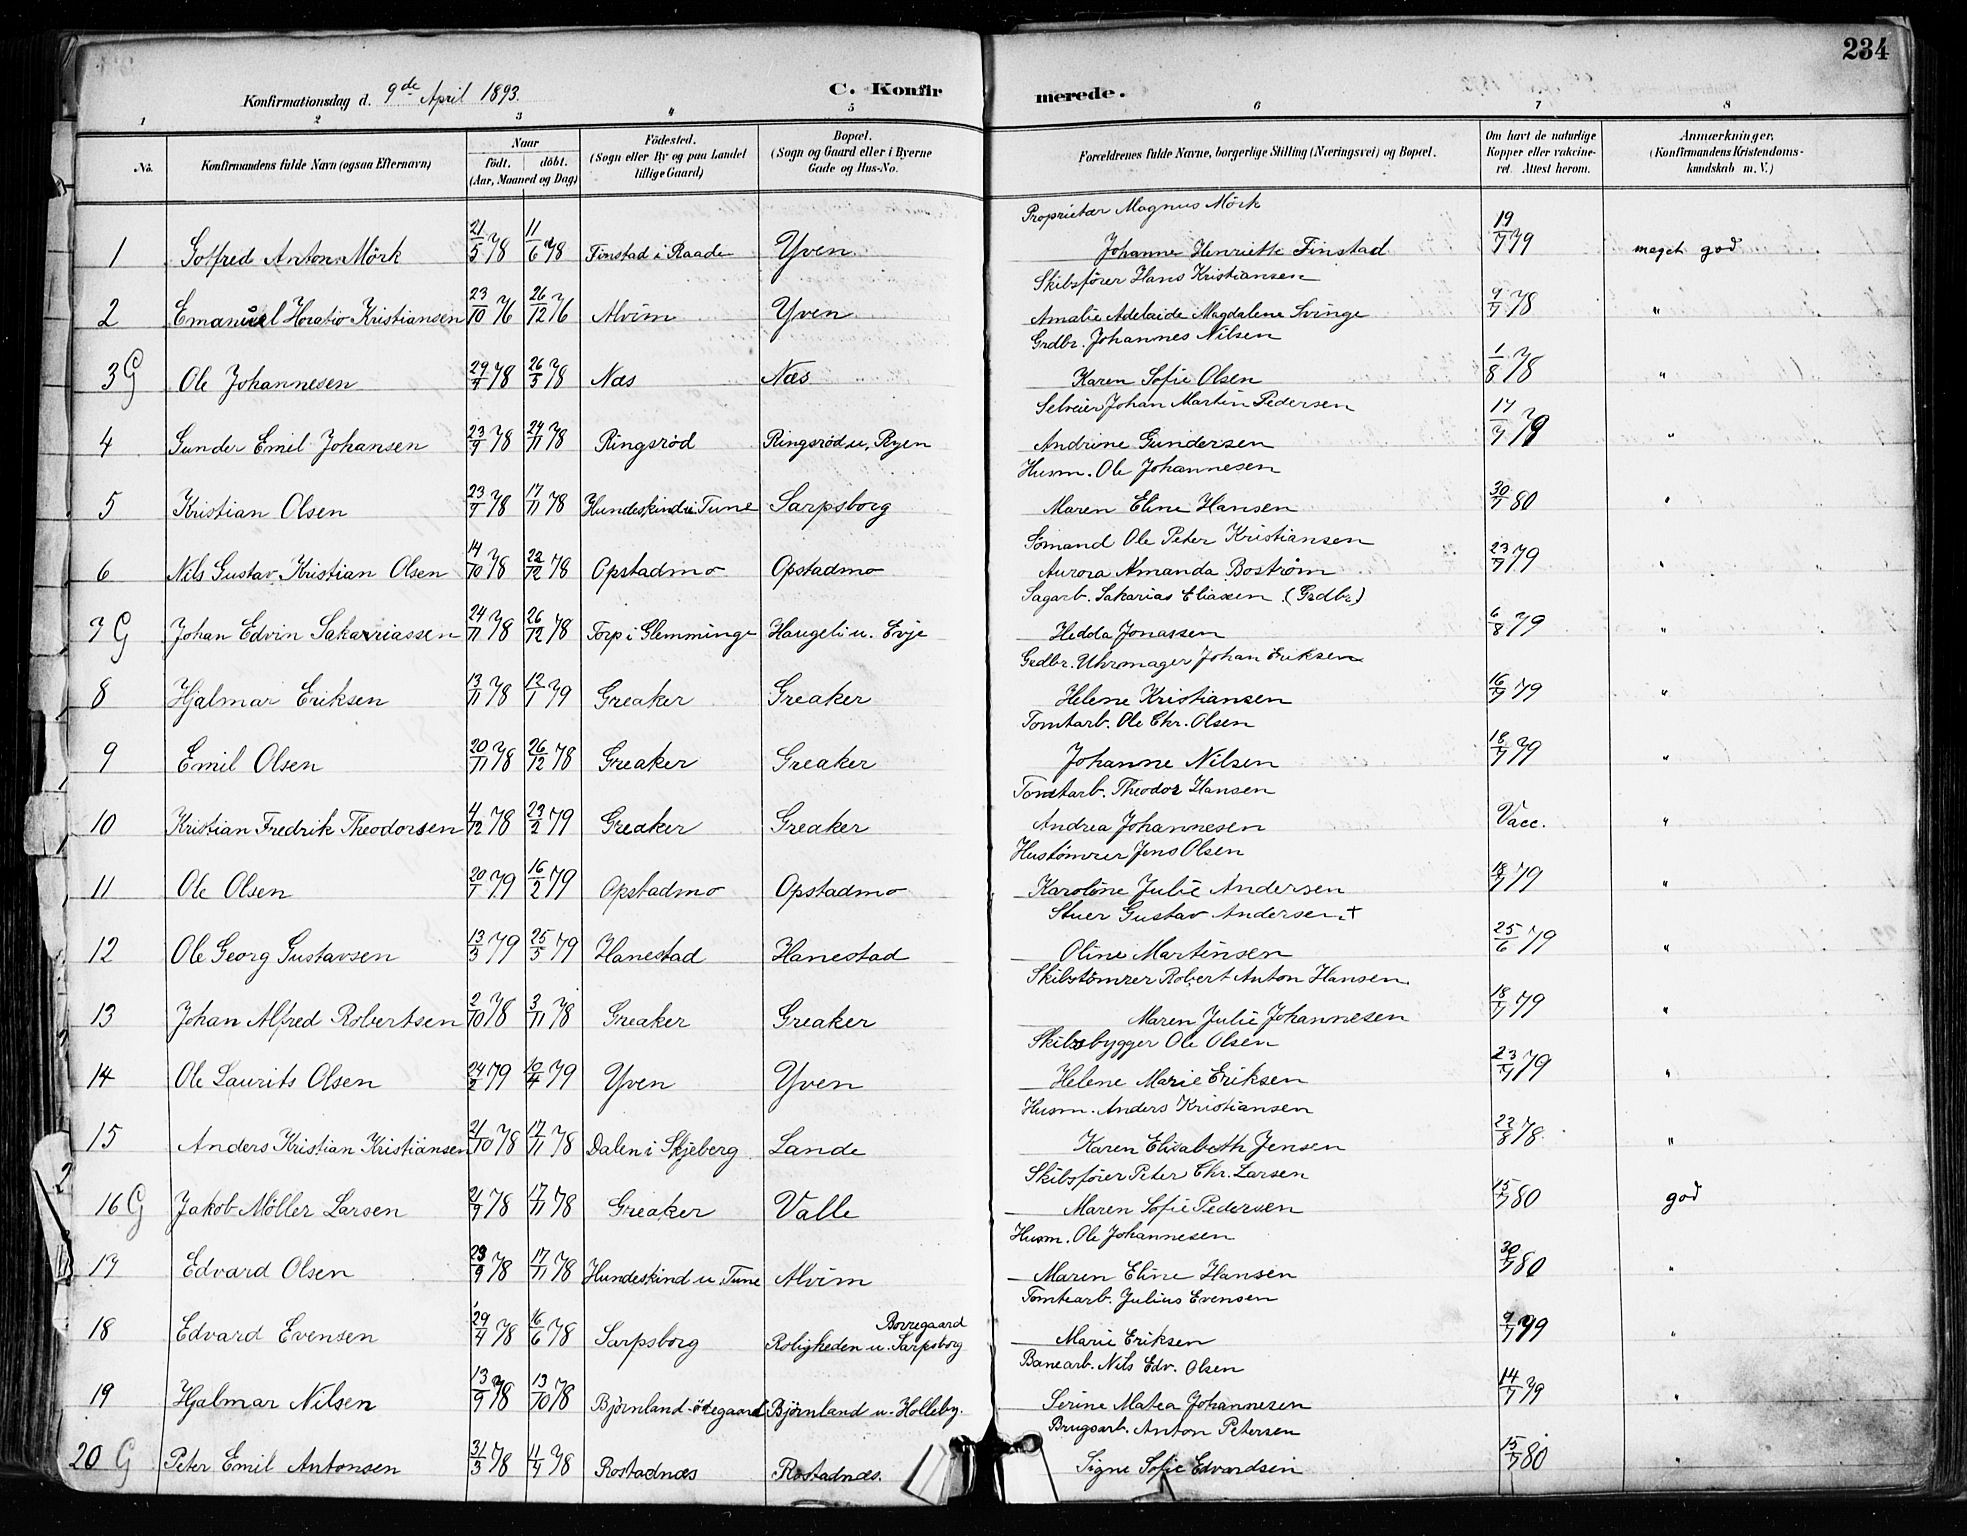 234
Konfirmationsdag d. 9de April 1893.
C. Konfir merede.
1 2 3 4 5 6 7 8
No. Konfirmandens fulde Navn (ogsaa Efternavn) Naar født. døbt. (Aar, Maaned og Dag) Fødested. (Sogn eller By og paa Landet tillige Gaard) Bopæl. (Sogn og Gaard eller i Byerne Gade og Hus-No. Forældrenes fulde Navne, borgerlige Stilling (Næringsvei) og Bopæl. Om havt de naturlige Kopper eller vakcineret. Attest herom. Anmærkninger. (Konfirmandens Kristendomskundskab m. V.)
Proprietær Magnus Mörk
1 Gotfred Anton Mörk 21/5 78 11/6 78 Finstad i Raade Yven Johanne Henriette Finstad 19/7 79 meget god
Skibsfører Hans Kristiansen
2 Emanuel Horatio Kristiansen 23/10 76 26/12 76 Alvim Yven Amalie Adelaide Magdalene Svinge 9/7 78 "
Grdbr. Johannes Nilsen
3 G Ole Johannesen 29/4 78 26/5 78 Næs Næs Karen Sofie Olsen 1/8 78 "
Selveier Johan Martin Pedersen
4 Gunder Emil Johansen 23/9 78 24/11 78 Ringsrød Ringsrød u. Ryen Andrine Gundersen 17/7 79 "
Husm. Ole Johannesen
5 Kristian Olsen 23/9 78 17/11 78 Hundeskind i Tune Sarpsborg Maren Eline Hansen 30/7 80 "
Sømand Ole Peter Kristiansen
6 Nils Gustav Kristian Olsen 14/10 78 22/12 78 Opstadmo Opstadmo Aurora Amanda Bostrøm 23/7 79 "
Sagarb. Sakarias Eliassen (Grdbr.)
7 G Johan Edvin Sakariassen 24/11 78 26/12 78 Torp i Glemminge Haugeli u. Evje Hedda Jonassen 6/8 79 "
Grdbr. Uhrmager Johan Eriksen
8 Hjalmar Eriksen 13/11 78 12/1 79 Greaker Greaker Helene Kristiansen 16/7 79 "
Tomtarb. Ole Chr. Olsen
9 Emil Olsen 20/11 78 26/12 78 Greaker Greaker Johanne Nilsen 18/7 79 "
Tomtarb. Theodor Hansen
10 Kristian Fredrik Theodorsen 4/12 78 23/2 79 Greaker Greaker Andrea Johannesen Vacc. "
Hustømrer Jens Olsen
11 Ole Olsen 20/1 79 16/2 79 Opstadmo Opstadmo Karoline Julie Andersen 18/7 79 "
Stuer Gustav Andersen +
12 Ole Georg Gustavsen 13/3 79 25/5 79 Hanestad Hanestad Oline Martinsen 25/6 79 "
Skibstømrer Robert Anton Hansen
13 Johan Alfred Robertsen 2/10 78 3/11 78 Greaker Greaker Maren Julie Johannesen 18/7 79 "
Skibsbygger Ole Olsen
14 Ole Laurits Olsen 24/2 79 10/4 79 Yven Yven Helene Marie Eriksen 23/7 79 "
Husm. Anders Kristiansen
15 Anders Kristian Kristiansen 21/10 78 17/11 78 Dalen i Skjeberg Lande Karen Elisabeth Jensen 22/8 78. "
Skibsfører Peter Chr. Larsen
16 G Jakob Møller Larsen 21/9 78 17/11 78 Greaker Valle Maren Sofie Pedersen 15/7 80 god
Husm. Ole Johannesen
17 Edvard Olsen 23/9 78 17/11 78 Hundeskind u. Tune Alvim Maren Eline Hansen 30/7 80 "
Tomtearb. Julius Evensen
18 Edvard Evensen 29/4 78 16/6 78 Sarpsborg Borregaard Roligheden u. Sarpsborg Marie Eriksen 9/7 79 "
Banearb. Nils Edv. Olsen
19 Hjalmar Nilsen 13/9 78 13/10 78 Bjørnland-ødegaard Bjørnland u. Holleby. Serine Matea Johannesen 14/7 79 "
Brugsarb. Anton Petersen
20 G Peter Emil Antonsen 31/3 78 11/7 78 Rostadnæs Rostadnæs. Signe Sofie Edvardsen 15/7 80 "